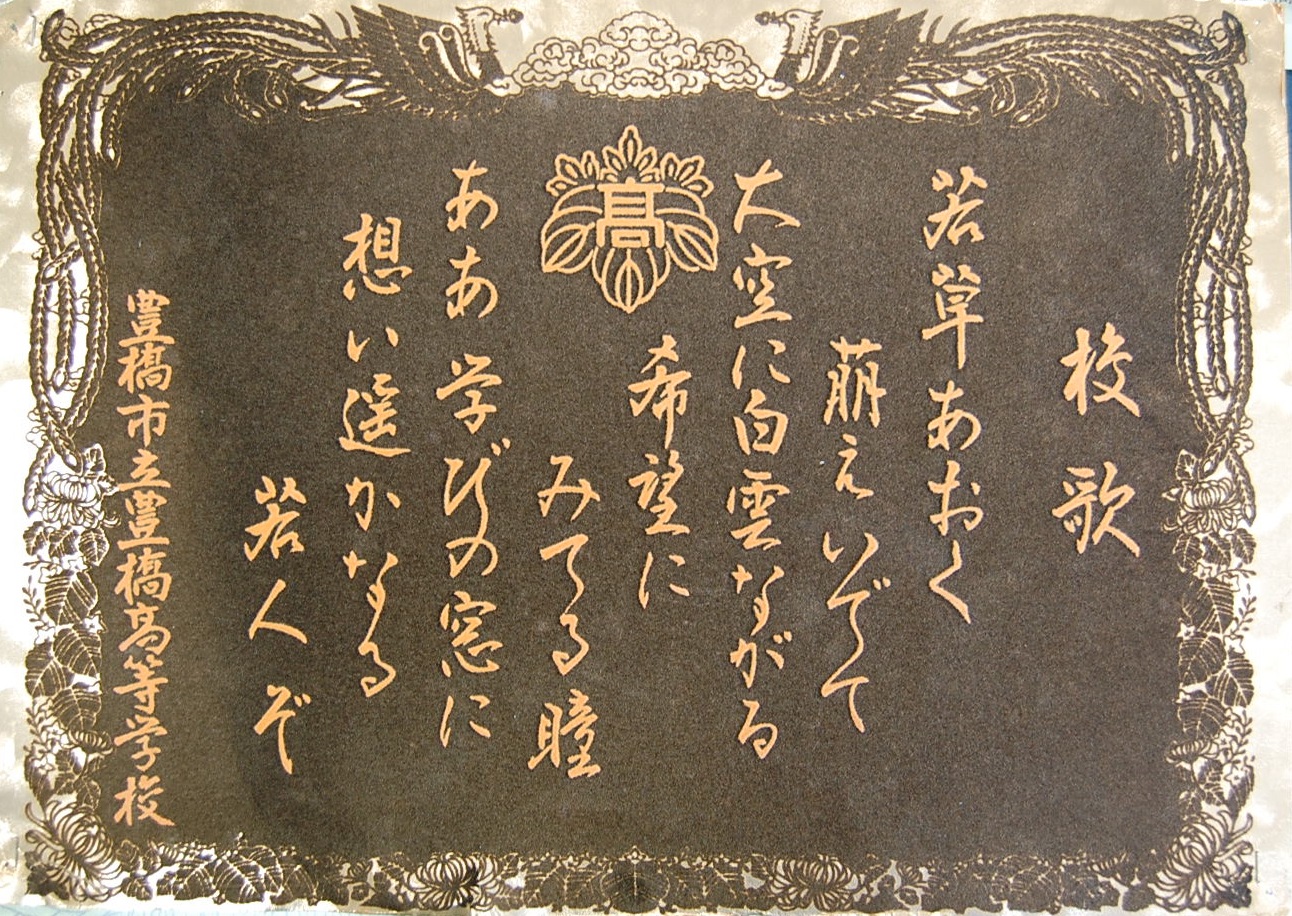 校歌
若草あおく
萠えいでて
大空に白雲ながる
希望に
みてる瞳
ああ学びの窓に
想い遥かなる
若人ぞ
豊橋市立豊橋高等学校
高